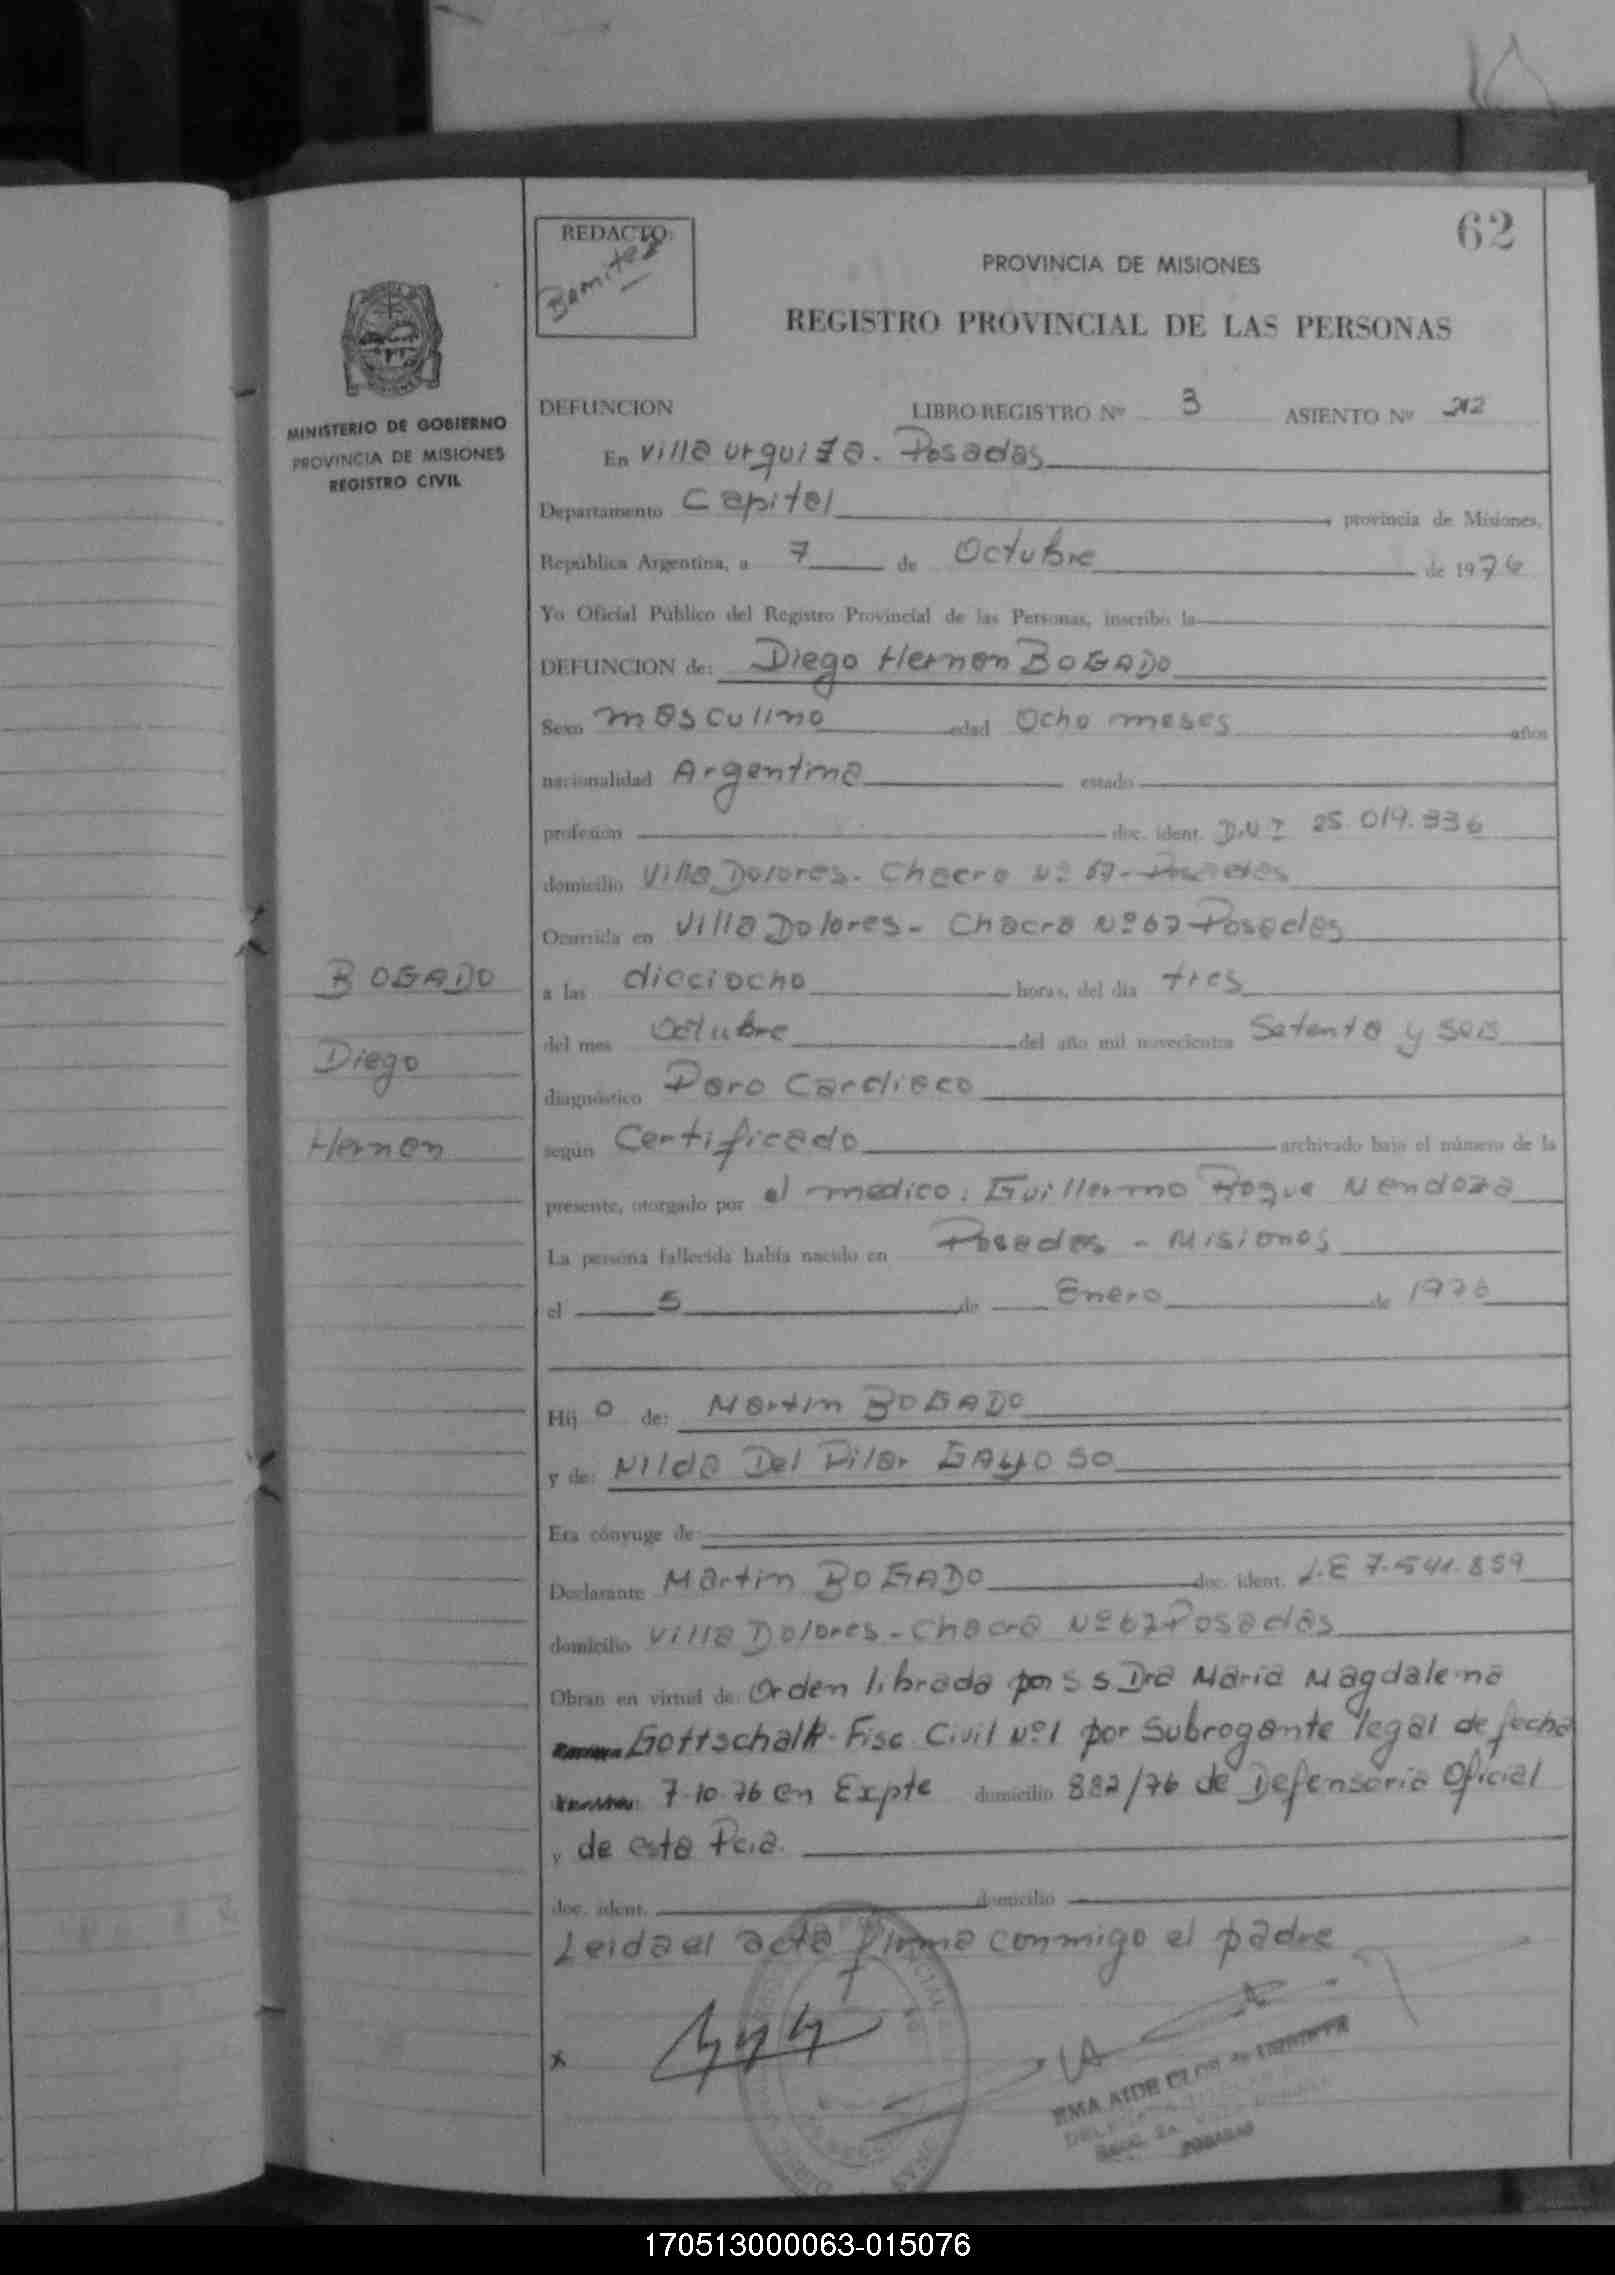 62
REDACTO:
Benitez
PROVINCIA DE MISIONES
REGISTRO PROVINCIAL DE LAS PERSONAS
MINISTERIO DE GOBIERNO
PROVINCIA DE MISIONES
REGISTRO CIVIL
DEFUNCION LIBRO-REGISTRO Nº 3 ASIENTO Nº 212
En Villa Urquiza. Posadas
Departamento Capital provincia de Misiones,
República Argentina, a 7 de Octubre de 1976
Yo Oficial Público del Registro Provincial de las Personas, inscribo la
DEFUNCION de: Diego Hernan BOGADO
Sexo masculino edad Ocho meses años
nacionalidad Argentina estado
profesión doc. ident. D.N.I 25.019.336
domicilio Villa Dolores. Chacra Nº 67-Posadas
Ocurrida en Villa Dolores- Chacra Nº 67-Posadas
BOGADO
Diego
Hernan
a las dieciocho horas, del día tres
del mes Octubre del año mil novecientos Setenta y seis
diagnóstico Paro Cardiaco
según Certificado archivado bajo el número de la
presente, otorgado por el medico: Guillermo Roque Mendoza
La persona fallecida había nacido en Posadas - Misiones
el 5 de Enero de 1976
Hij o de: Martin BOGADO
y de: Nilda Del Pilar GAYOSO
Era cónyuge de:
Declarante Martin BOGADO doc. ident. L.E 7.541.859
domicilio Villa Dolores-Chacra Nº 67 Posadas
Obran en virtud de: Orden librada por S S Dra Maria Magdalena
Gottschalk- Fisc. Civil Nº 1 por Subrogante legal de fecha
7.10.76 en Expte domicilio 882/76 de Defensoria Oficial
y de esta Pcia.
doc. ident. domicilio
Leida el acta firma conmigo el padre
x
POSADAS
170513000063-015076